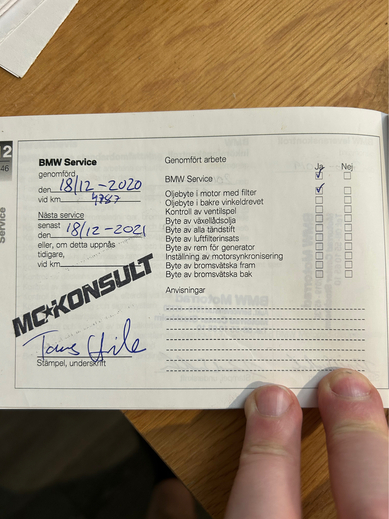 12
46
Service
BMW Service
genomförd
den 18/12-2020
vid km 4787
Nästa service
senast 18/12-2021
eller, om detta uppnås
tidigare,
vid km
MC★KONSULT
Stämpel, underskrift
Genomfört arbete
Ja Nej
BMW Service
Oljebyte i motor med filter
Oljebyte i bakre vinkeldrevet
Kontroll av ventilspel
Byte av växellådsolja
Byte av alla tändstift
Byte av luftfilterinsats
Byte av rem för generator
Inställning av motorsynkronisering
Byte av bromsvätska fram
Byte av bromsvätska bak
Anvisningar